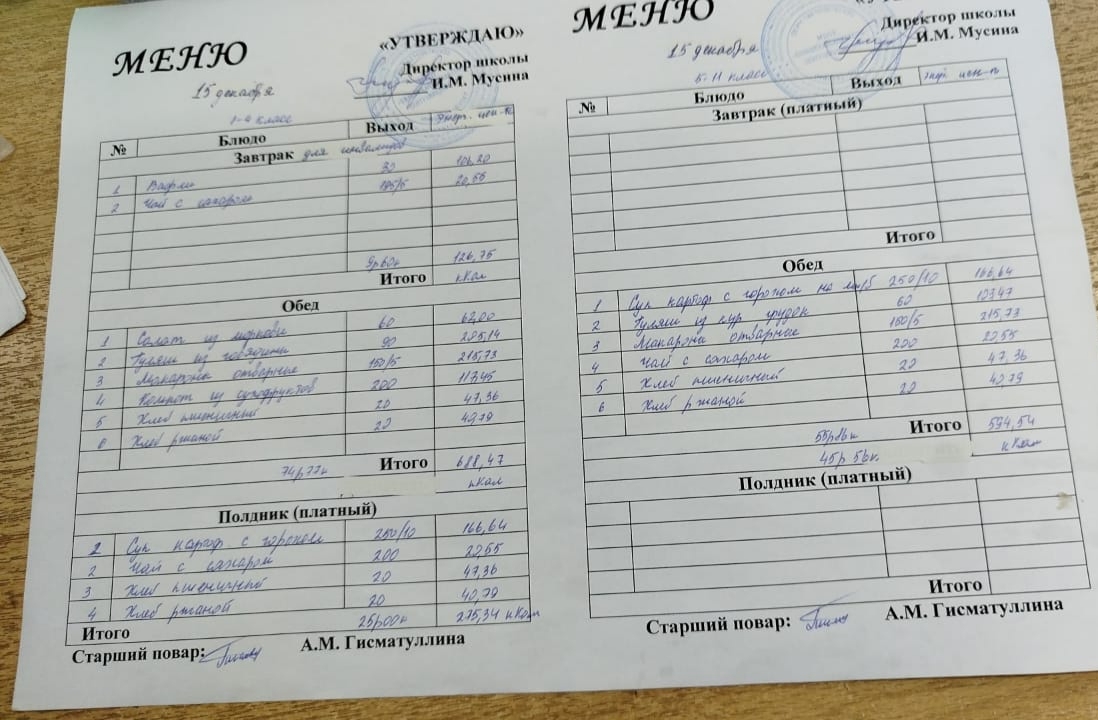 МЕНЮ
«УТВЕРЖДАЮ»
Директор школы
И.М. Мусина
15 декабря
1-4 класс
№ Блюдо Выход Энерг. цен-ть
Завтрак для инвалидов
1 Вафли 30 106,20
2 Чай с сахаром 195/5 20,55
9р60к 126,75
Итого кКал
Обед
1 Салат из моркови 60 62,00
2 Гуляш из говядины 90 205,14
3 Макароны отварные 150/5 215,73
4 Компот из сухофруктов 200 117,45
5 Хлеб пшеничный 20 47,36
6 Хлеб ржаной 20 40,79
74р77к Итого 688,47
кКал
Полдник (платный)
1 Суп картоф с горохом 250/10 166,64
2 Чай с сахаром 200 20,55
3 Хлеб пшеничный 20 47,36
4 Хлеб ржаной 20 40,79
Итого 25р00к 275,34 кКал
Старший повар: А.М. Гисматуллина
МЕНЮ
Директор школы
И.М. Мусина
15 декабря
5-11 класс
№ Блюдо Выход Энер. цен-ть
Завтрак (платный)
Итого
Обед
1 Суп картоф с горохом на 250/10 166,64
2 Гуляш из кур грудок 60 103,47
3 Макароны отварные 150/5 215,73
4 Чай с сахаром 200 20,55
5 Хлеб пшеничный 20 47,36
6 Хлеб ржаной 20 40,79
Итого 594,54
45р56к. кКал
Полдник (платный)
Итого
Старший повар: А.М. Гисматуллина